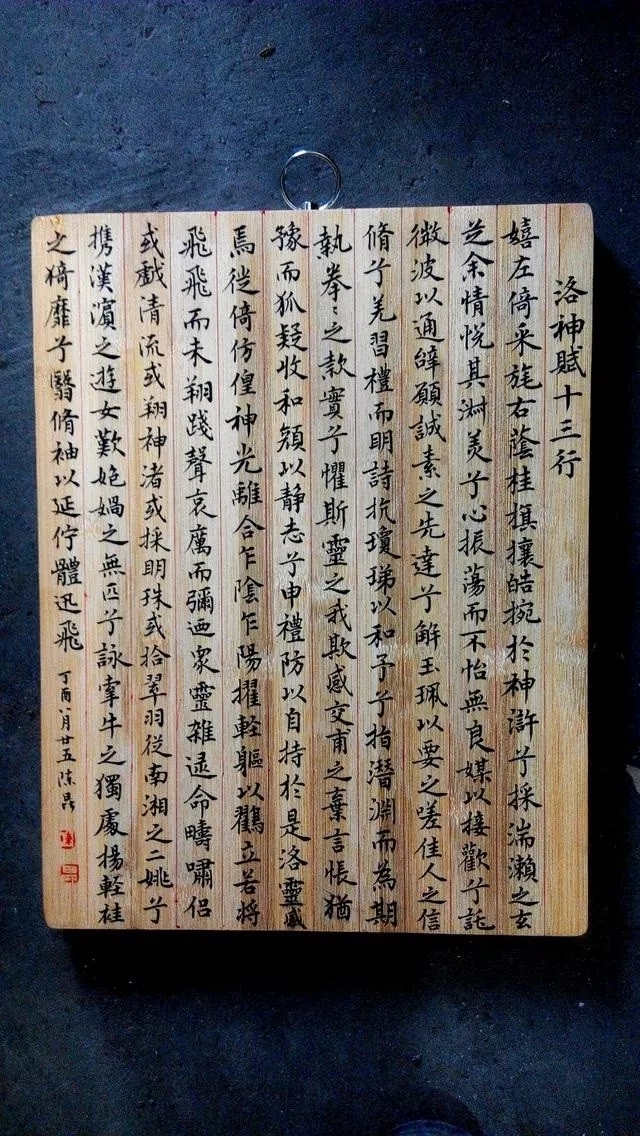 洛神賦十三行
嬉左倚采旄右蔭桂旗攘皓捥於神滸兮採湍瀨之玄
芝余情悅其淋羙兮心振蕩而不怡無良媒以接歡兮託
微波以通辝願誠素之先達兮解玉珮以要之嗟佳人之信
脩兮羌習禮而明詩抗瓊珶以和予兮指潛淵而為期
執拳〻之款實兮懼斯靈之我欺感交甫之棄言悵猶
豫而狐疑收和顏以静志兮申禮防以自持於是洛靈感
焉徙倚仿偟神光離合乍陰乍陽擢軽軀以鸖立若將
飛飛而未翔踐聲哀厲而彌迊衆靈雜遝命疇嘯侶
或戲清流或翔神渚或採明珠或拾翠羽從南湘之二姚兮
携漢濱之遊女歎㛂媧之無匹兮詠牽牛之獨處揚軽袿
之猗靡兮翳脩袖以延佇體迅飛
丁酉八月廿五陈昮